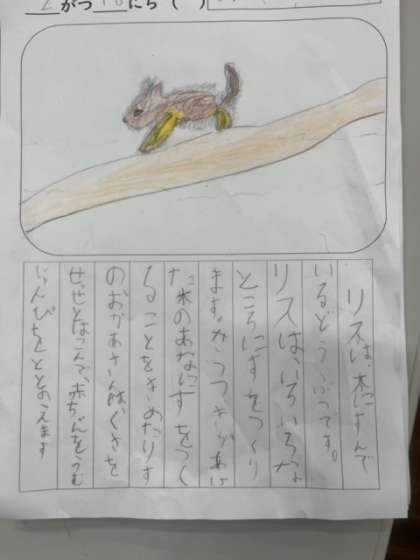 2がつ16にち（ ）
リスは、木にすんで
いるどうぶつです。
リスは、いろいろな
ところにすをつくり
ます。かうつきがあけ
た木のあなにすをつく
ることをきめたりす
のおかあさんは、くさを
せっせとはこんで、赤ちゃんをうむ
じゅんびをととのえます